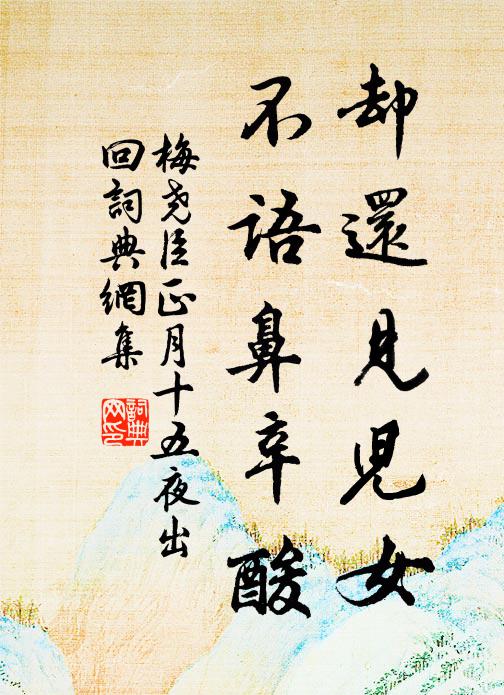 却還見児女
不語鼻辛酸
梅尧臣正月十五夜出
回詞典網集
詞典
网印